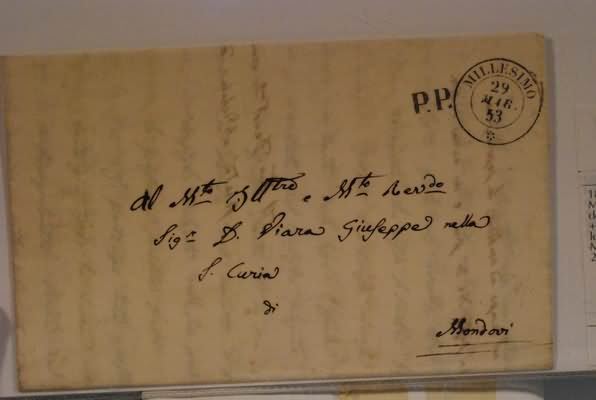 P.P.
MILLESIMO
29
MAR.
53
Al M.to Ill.tre e M.to Rev.do
Sig.r D. Viara Giuseppe nella
S. Curia
di
Mondovi